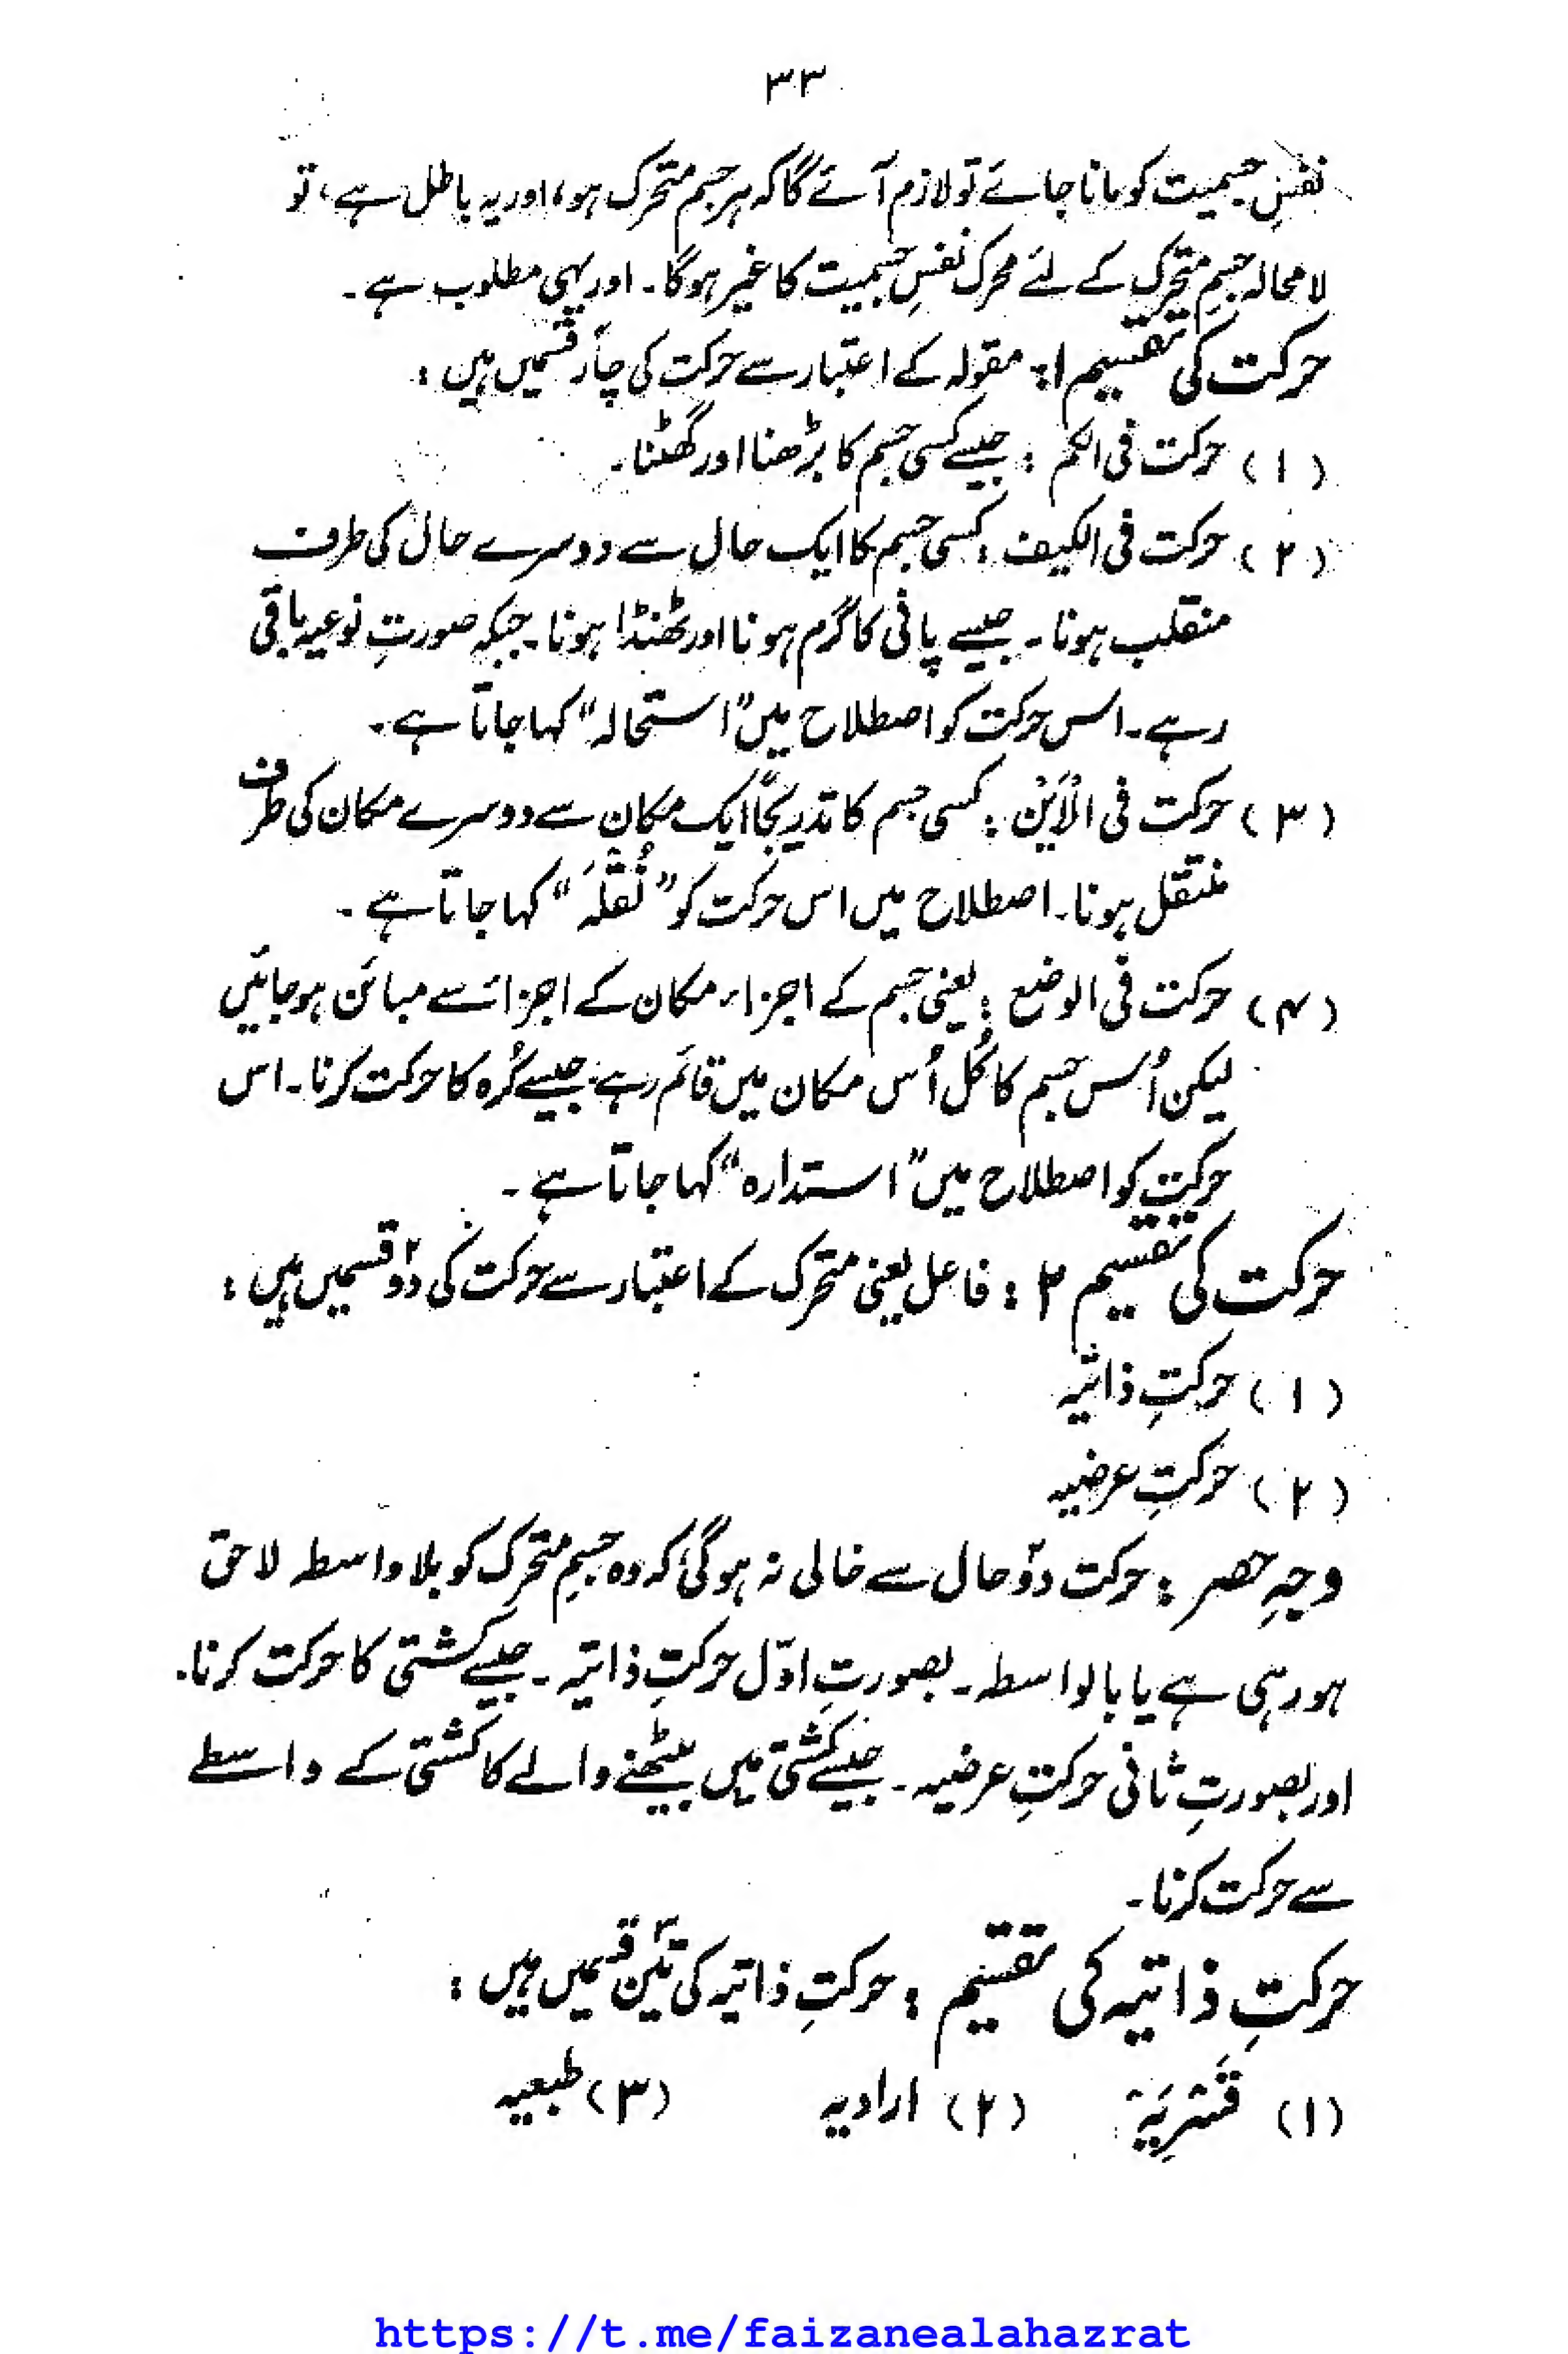 ۳۳
نفسِ جسمیت کو مانا جائے تو لازم آئے گا کہ ہر جسم متحرک ہو، اور یہ باطل ہے، تو
لا محالہ جسمِ متحرک کے لئے محرک نفسِ جسمیت کا غیر ہوگا۔ اور یہی مطلوب ہے۔
حرکت کی تقسیم ۱: مقولہ کے اعتبار سے حرکت کی چار قسمیں ہیں :
(۱) حرکت فی الکم : جیسے کسی جسم کا بڑھنا اور گھٹنا۔
(۲) حرکت فی الکیف : کسی جسم کا ایک حال سے دوسرے حال کی طرف
منقلب ہونا۔ جیسے پانی کا گرم ہونا اور ٹھنڈا ہونا۔ جبکہ صورتِ نوعیہ باقی
رہے۔ اس حرکت کو اصطلاح میں "استحالہ" کہا جاتا ہے۔
(۳) حرکت فی الْاَیْن : کسی جسم کا تدریجًا ایک مکان سے دوسرے مکان کی طرف
منتقل ہونا۔ اصطلاح میں اس حرکت کو "نُقْلَہ" کہا جاتا ہے۔
(۴) حرکت فی الوضع : یعنی جسم کے اجزاء مکان کے اجزا سے مبائن ہوجائیں
لیکن اُس جسم کا کُل اُس مکان میں قائم رہے، جیسے کُرہ کا حرکت کرنا۔ اس
حرکت کو اصطلاح میں "استدارہ" کہا جاتا ہے۔
حرکت کی تقسیم ۲ : فاعل یعنی متحرک کے اعتبار سے حرکت کی دو۲ قسمیں ہیں :
(۱) حرکتِ ذاتیہ
(۲) حرکتِ عرضیہ
وجہِ حصر : حرکت دو حال سے خالی نہ ہوگی کہ وہ جسمِ متحرک کو بلا واسطہ لاحق
ہو رہی ہے یا بالواسطہ۔ بصورتِ اوّل حرکتِ ذاتیہ۔ جیسے کشتی کا حرکت کرنا۔
اور بصورتِ ثانی حرکتِ عرضیہ۔ جیسے کشتی میں بیٹھنے والے کا کشتی کے واسطے
سے حرکت کرنا۔
حرکتِ ذاتیہ کی تقسیم : حرکتِ ذاتیہ کی تین۳ قسمیں ہیں :
(۱) قَسْرِیَۃ (۲) ارادیہ (۳) طبعیہ
https://t.me/faizanealahazrat